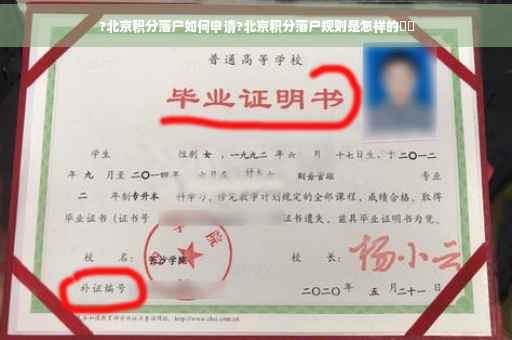 ?北京积分落户如何申请?北京积分落户规则是怎样的
普通高等学校
毕业证明书
学生 性别 女 ,一九九二 年 六 月 十七日生,于 二〇一二
年 九 月至 二〇一四 年 六月在 财务管理 专业
二 年制 专升本 科学习,修完教学计划规定的全部课程,成绩合格,取得
毕业证书(证书号 证书遗失,兹具毕业证明书为凭。
校 名: 长沙学院 校 长: 杨小云
补证编号 二〇二〇年 五 月二十一日